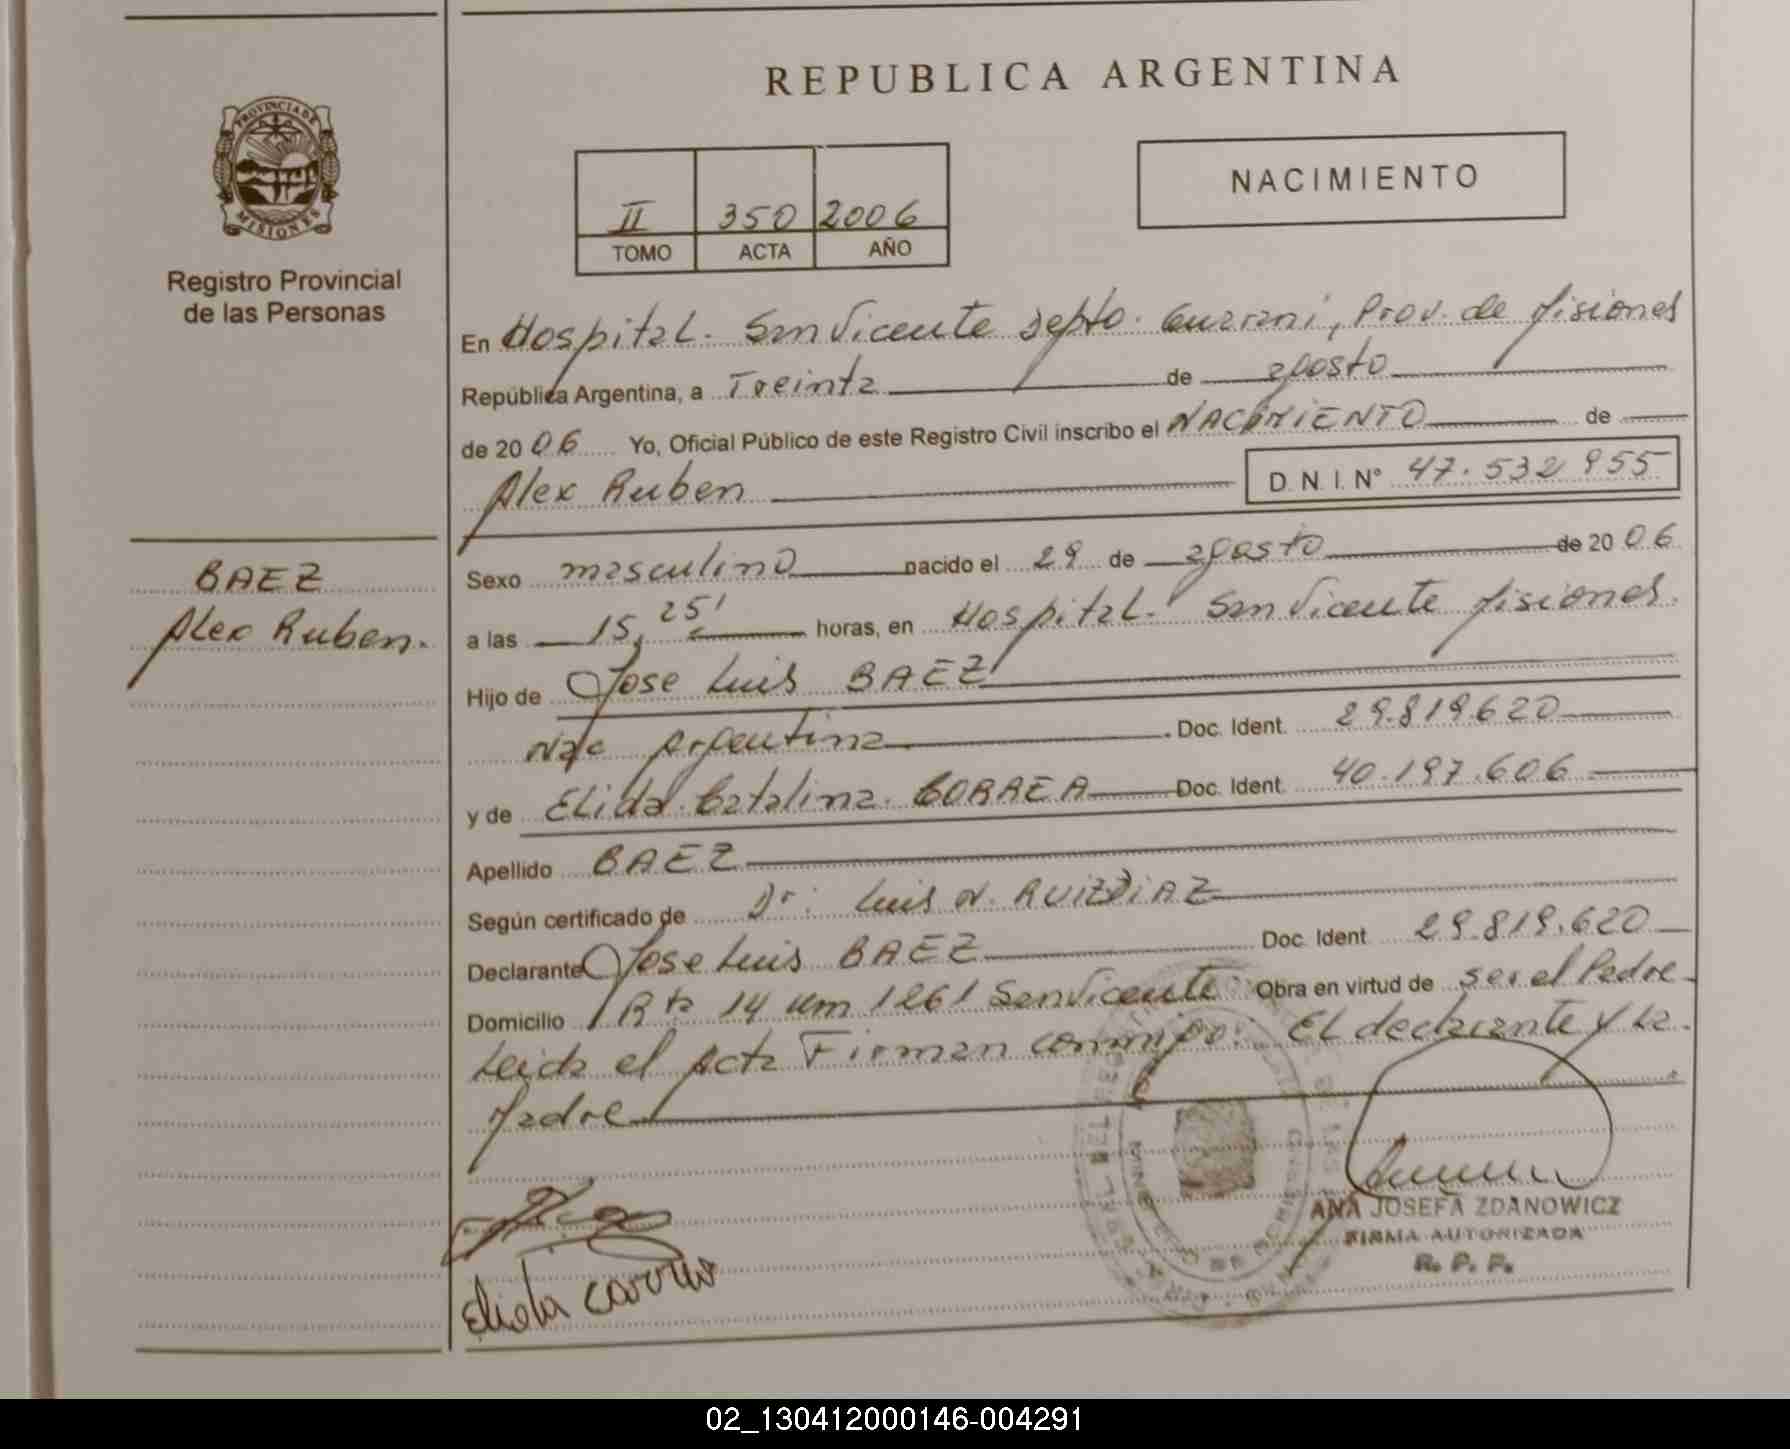 REPUBLICA ARGENTINA
PROVINCIA DE
MISIONES
Registro Provincial
de las Personas
NACIMIENTO
II 350 2006
TOMO ACTA AÑO
En Hospital. San Vicente Depto. Guarani, Prov. de Misiones
República Argentina, a Treinta de agosto
de 2006 Yo, Oficial Público de este Registro Civil inscribo el NACIMIENTO de
Alex Ruben D. N. I. N° 47.532 955
BAEZ
Alex Ruben.
Sexo masculino nacido el 29 de agosto de 2006
a las 15,25' horas, en Hospital. San Vicente Misiones.
Hijo de Jose Luis BAEZ
Nac Argentina Doc. Ident. 29.819.620
y de Elida Catalina CORREA Doc. Ident. 40.197.606
Apellido BAEZ
Según certificado de Dr: Luis N. RUIZDIAZ
Declarante Jose Luis BAEZ Doc. Ident 29.819.620
Domicilio Rta 14 km 1261 San Vicente Obra en virtud de ser el Padre
Leida el Acta Firman conmigo: El declarante y La
Madre
ANA JOSEFA ZDANOWICZ
FIRMA AUTORIZADA
R. P. P.
Elida
02_130412000146-004291